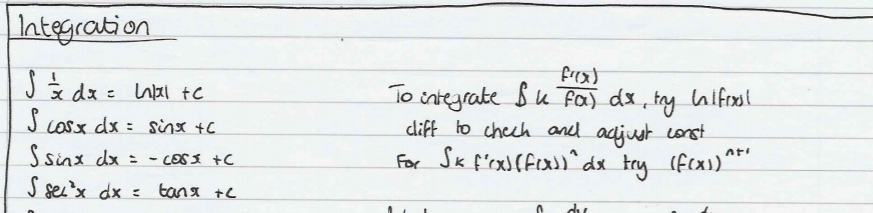 Integration
∫ 1/x dx = ln|x| + c
∫ cosx dx = sinx + c
∫ sinx dx = -cosx + c
∫ sec²x dx = tanx + c
To integrate ∫ k f'(x)/f(x) dx, try ln|f(x)|
diff to check and adjust const
For ∫ k f'(x)(f(x))ⁿ dx try (f(x))ⁿ⁺¹